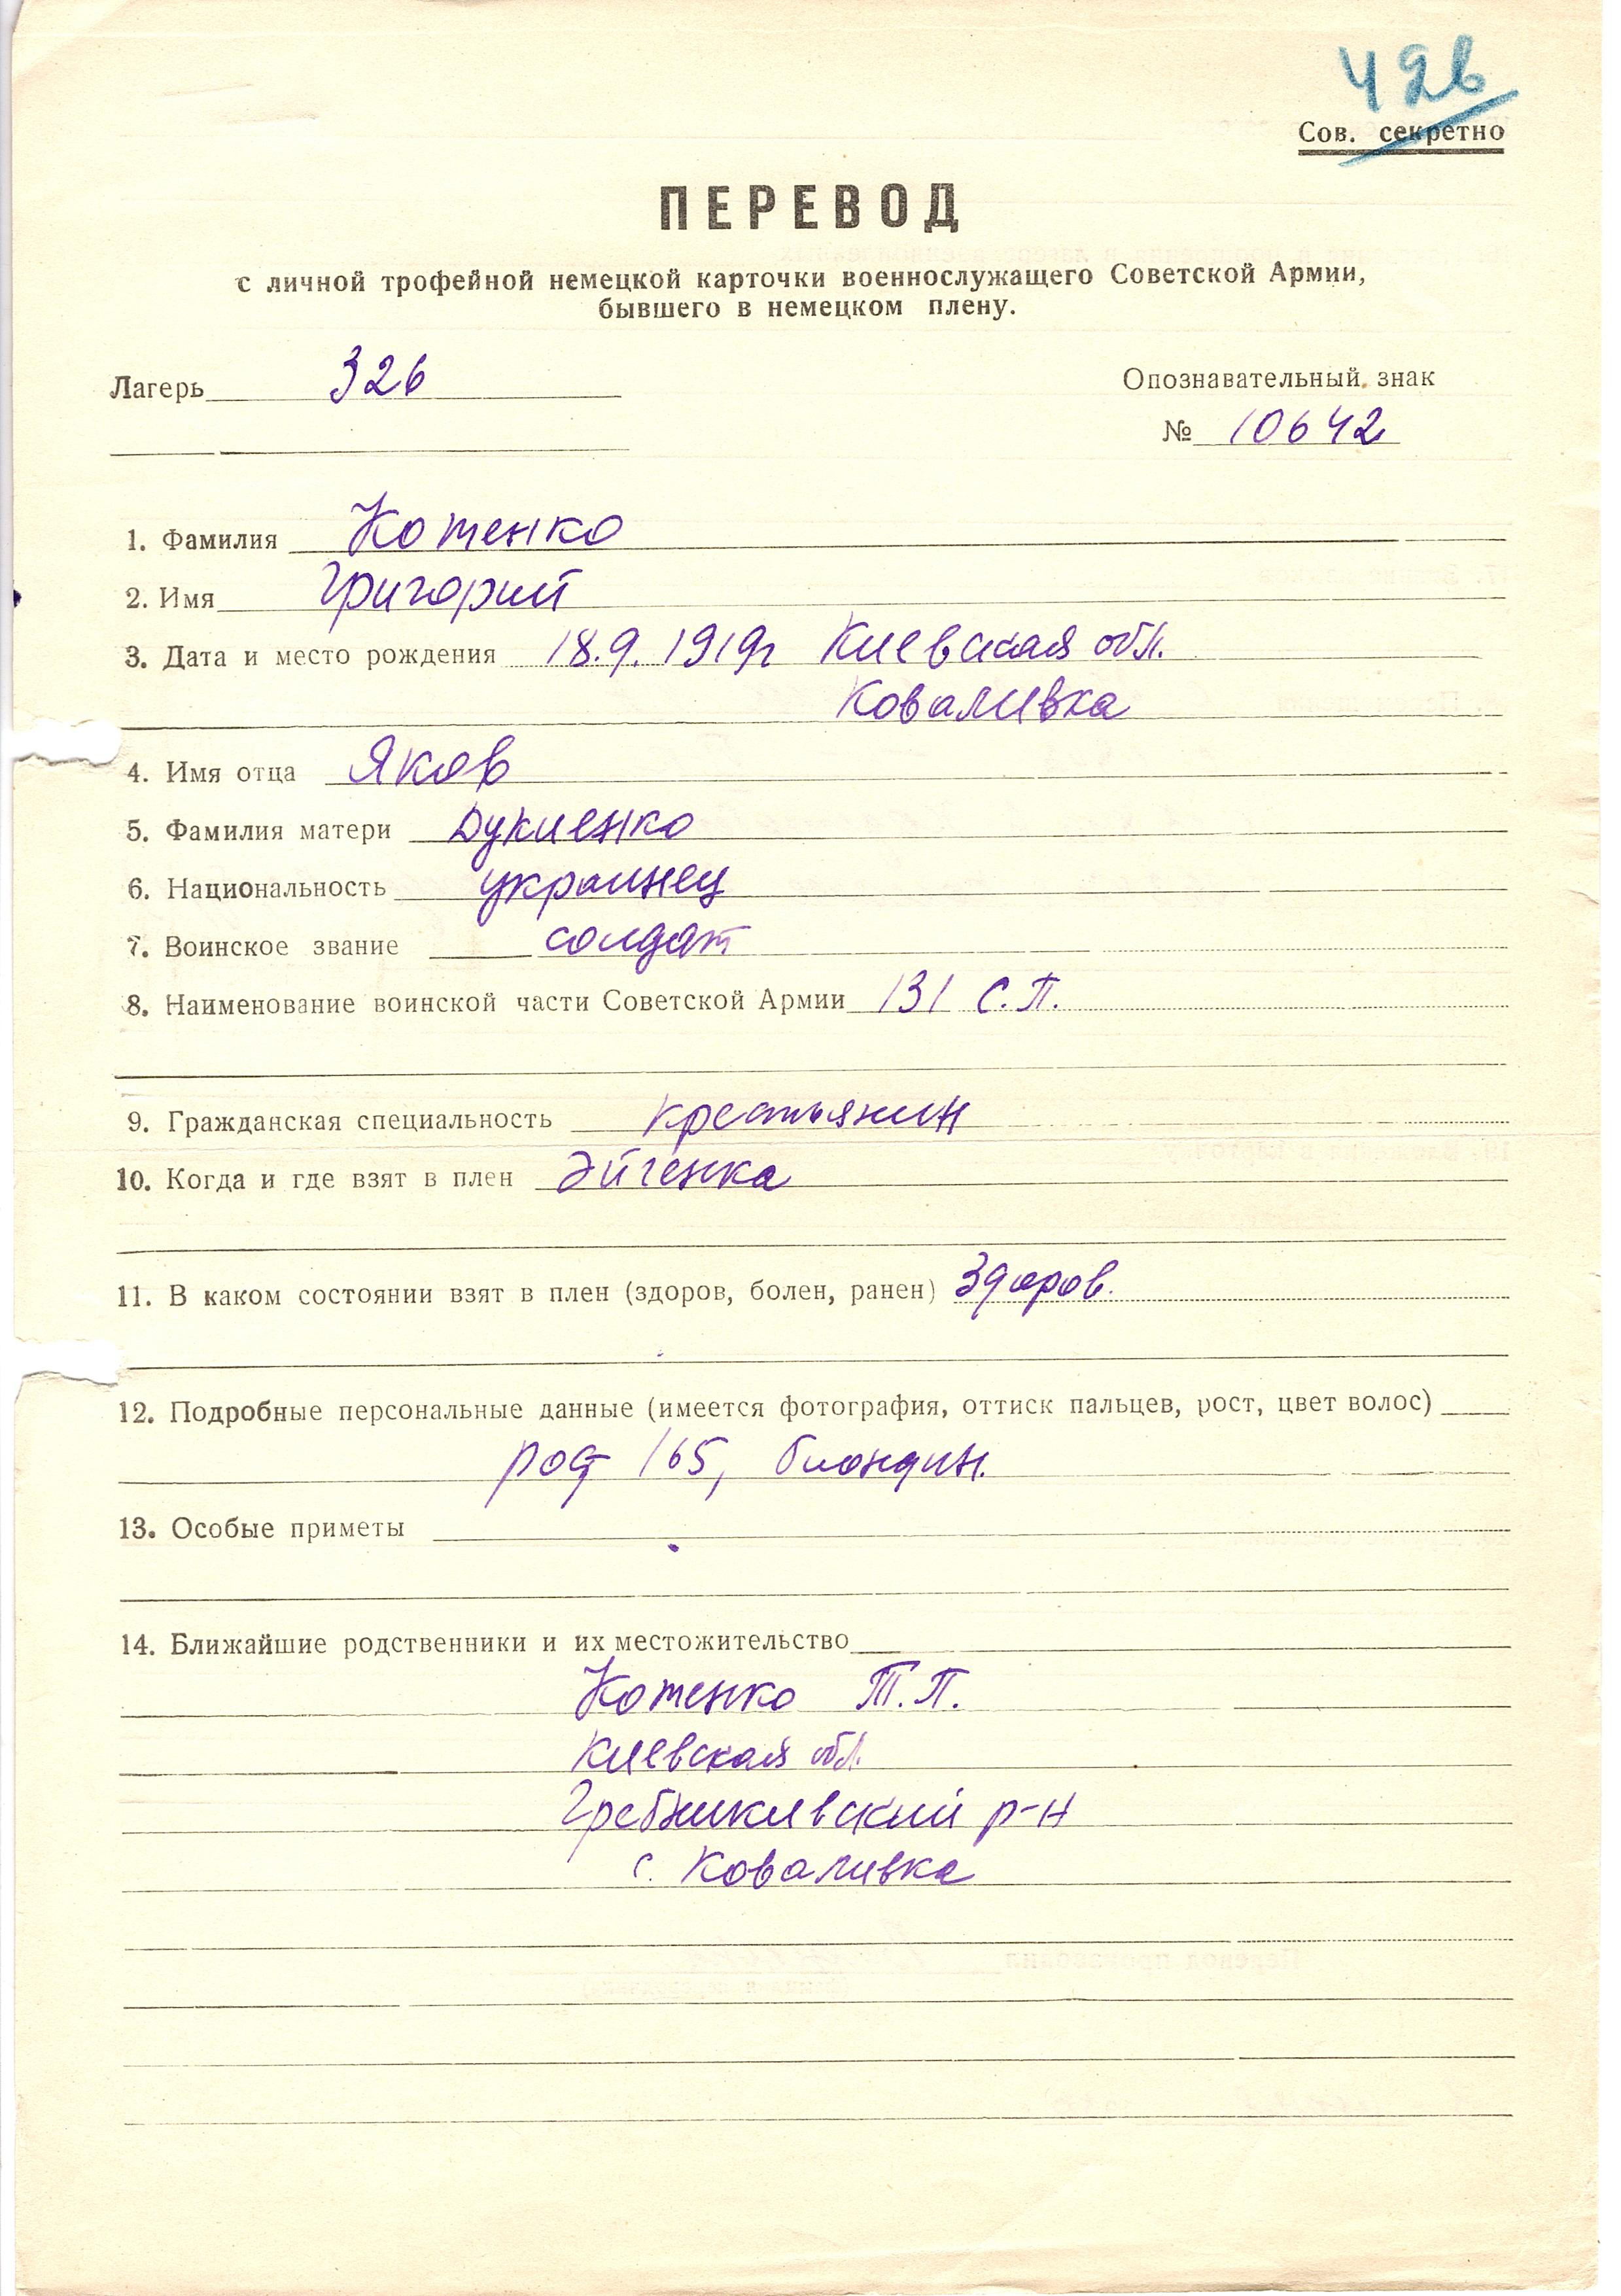 42б
Сов. секретно
ПЕРЕВОД
с личной трофейной немецкой карточки военнослужащего Советской Армии,
бывшего в немецком плену.
Лагерь 326
Опознавательный знак
№ 10642
1. Фамилия Котенко
2. Имя Григорий
3. Дата и место рождения 18.9.1919г Киевская обл.
Коваливка
4. Имя отца Яков
5. Фамилия матери Дукиенко
6. Национальность украинец
7. Воинское звание солдат
8. Наименование воинской части Советской Армии 131 с.п.
9. Гражданская специальность крестьянин
10. Когда и где взят в плен Эйгенка
11. В каком состоянии взят в плен (здоров, болен, ранен) здоров.
12. Подробные персональные данные (имеется фотография, оттиск пальцев, рост, цвет волос)
рост 165, блондин.
13. Особые приметы
14. Ближайшие родственники и их местожительство
Котенко Т.П.
Киевская обл.
Гребникивский р-н
с. Коваливка